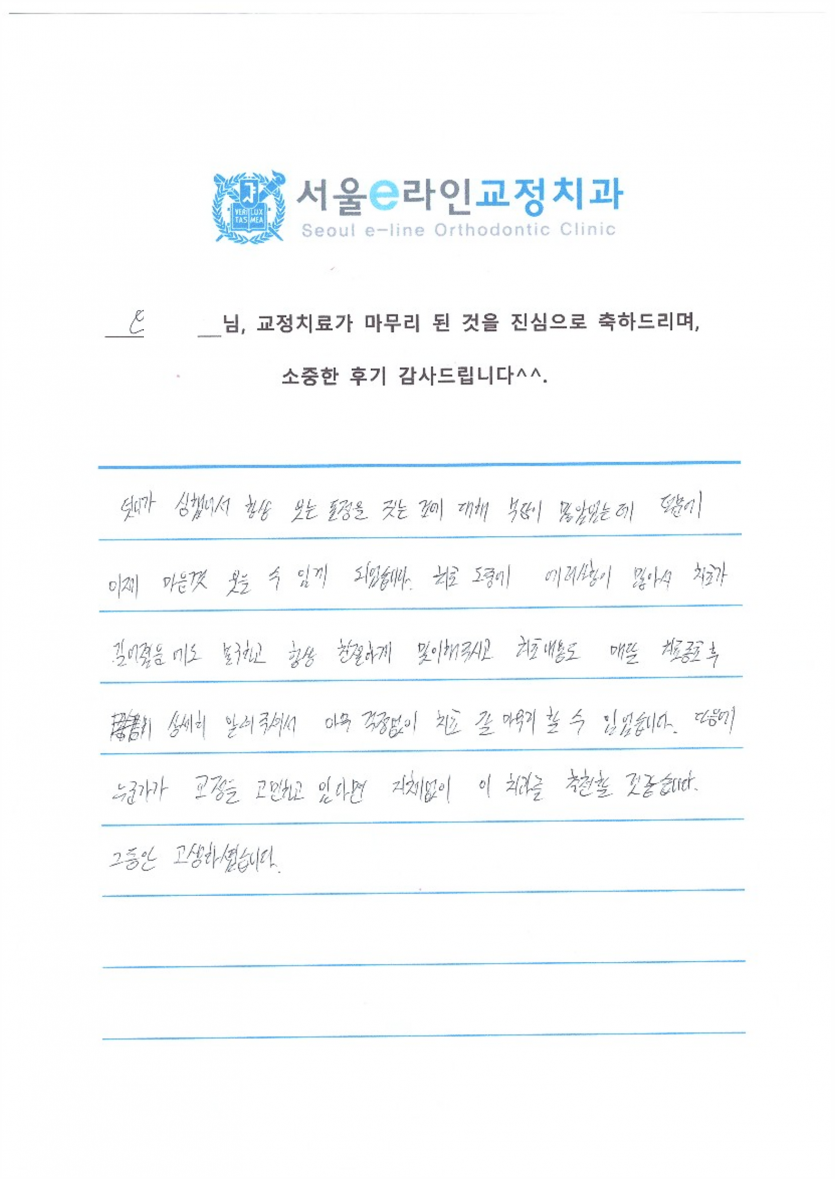 VERI LUX
TAS MEA
서울e라인교정치과
Seoul e-line Orthodontic Clinic
님, 교정치료가 마무리 된 것을 진심으로 축하드리며,
소중한 후기 감사드립니다^^.
덧니가 심했어서 항상 웃는 표정을 짓는 것에 대해 부담이 많았었는데 덕분에
이제 마음껏 웃을 수 있게 되었습니다. 치료 도중에 애로사항이 많아서 치료가
길어졌음에도 불구하고 항상 친절하게 맞이해주시고 치료내용도 매번 치료종료 후
상세히 알려주셔서 아무 걱정없이 치료 잘 마무리 할 수 있었습니다. 다음에
누군가가 교정을 고민하고 있다면 지체없이 이 치과를 추천할 것같습니다.
그동안 고생하셨습니다.